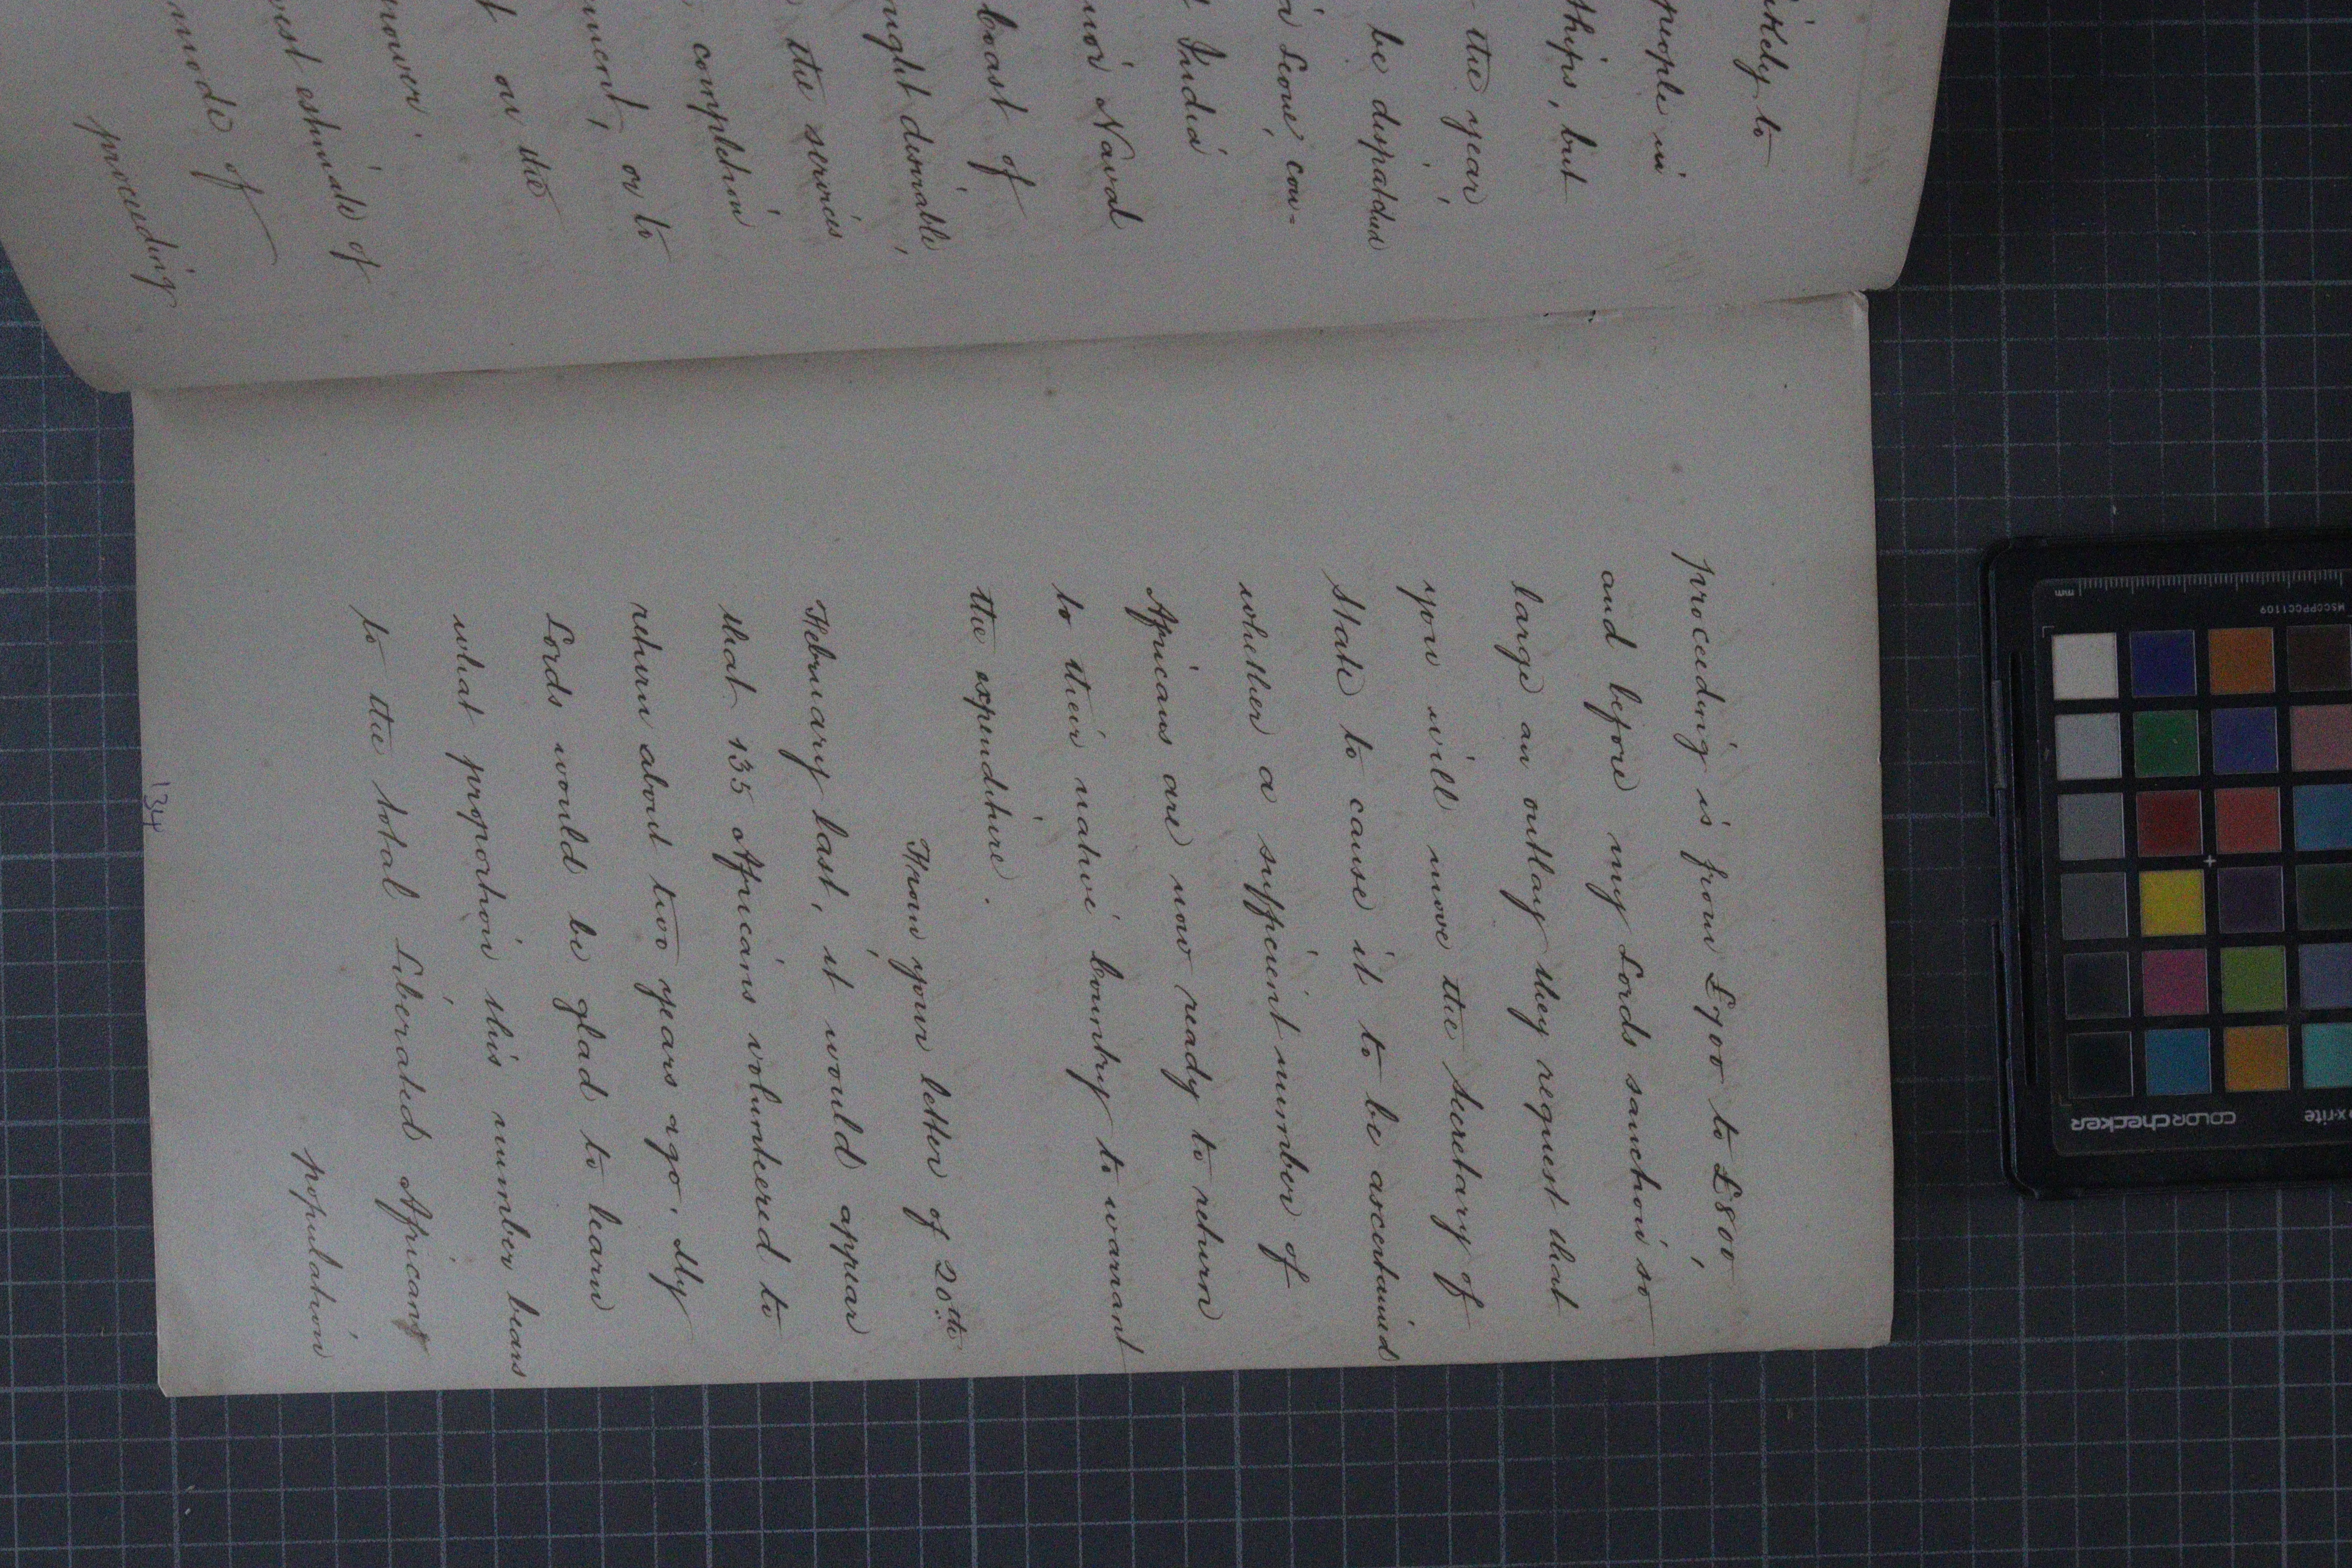 itely to
people in
ships, but
the year
be dispatched
Leone, con-
India
Naval
coast of
might desirable
the services
completion
or to
on the
estimate of
mode of
proceeding
proceeding is from £700 to £800,
and before my Lords sanction so
large an outlay they request that
you will move the Secretary of
State to cause it to be ascertained
whether a sufficient number of
Africans are now ready to return
to their native country to warrant
the expenditure.
From your letter of 20th
February last, it would appear
that 135 Africans volunteered to
return about two years ago. My
Lords would be glad to learn
what proportion this number bears
to the total Liberated African
population
134
mm
MSCCPPCC1109
x-rite
COLORchecker